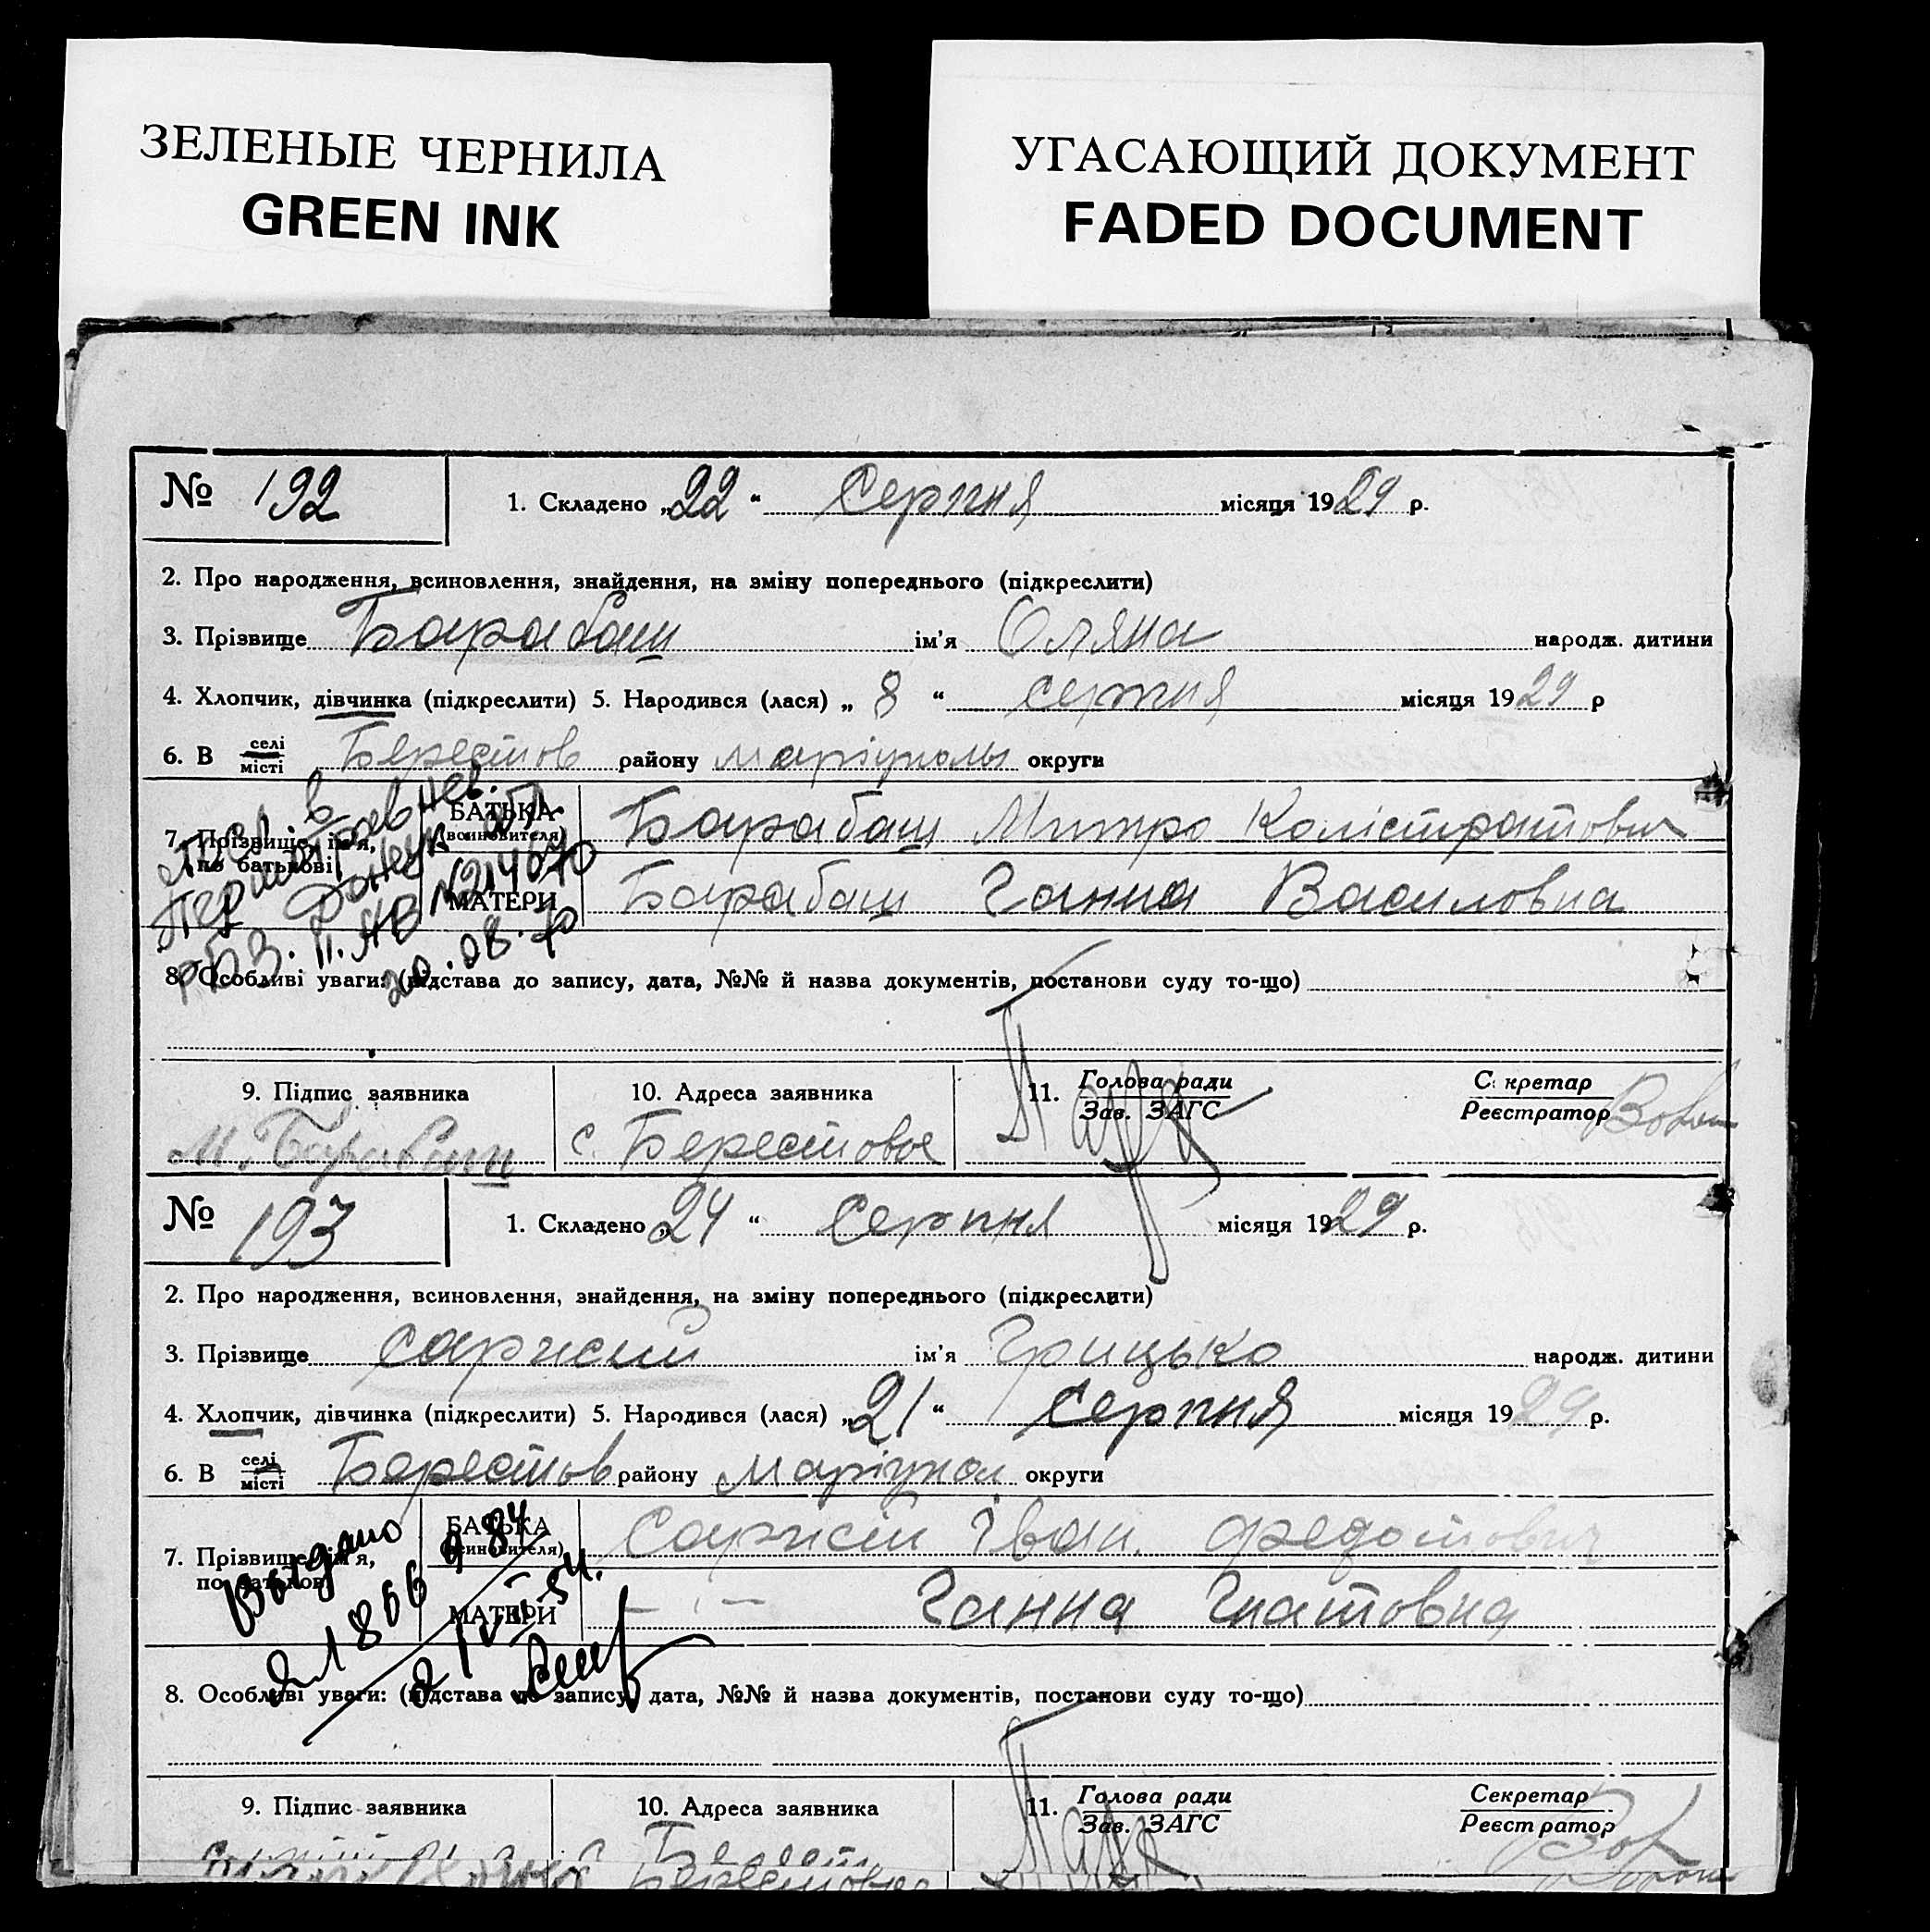 ЗЕЛЕНЫЕ ЧЕРНИЛА
GREEN INK
УГАСАЮЩИЙ ДОКУМЕНТ
FADED DOCUMENT
№ 192
1. Складено „22“ Серпня місяця 1929 р.
2. Про народження, всиновлення, знайдення, на зміну попереднього (підкреслити)
3. Прізвище Барабаш ім'я Оляна народж. дитини
4. Хлопчик, дівчинка (підкреслити) 5. Народився (лася) „8“ серпня місяця 1929 р
6. В селі місті Берестов району Маріуполь округи
7. Прізвище, ім'я, по батькові
БАТЬКА (всиновителя) Барабаш Митро Калістратович
МАТЕРИ Барабаш Ганна Василовна
20.08.70
8. Особливі уваги: (підстава до запису, дата, №№ й назва документів, постанови суду то-що)
9. Підпис заявника
10. Адреса заявника
11. Голова ради Зав. ЗАГС
Секретар Реєстратор
М. Барабаш
с. Берестовое
№ 193
1. Складено „24“ Серпня місяця 1929 р.
2. Про народження, всиновлення, знайдення, на зміну попереднього (підкреслити)
3. Прізвище ім'я Грицько народж. дитини
4. Хлопчик, дівчинка (підкреслити) 5. Народився (лася) „21“ Серпня місяця 1929 р.
6. В селі місті Берестов району Маріупол округи
7. Прізвище, ім'я, по батькові
БАТЬКА (всиновителя) Іван Федотович
МАТЕРИ Ганна Гнатовна
Выдано
8. Особливі уваги: (підстава до запису, дата, №№ й назва документів, постанови суду то-що)
9. Підпис заявника
10. Адреса заявника
11. Голова ради Зав. ЗАГС
Секретар Реєстратор